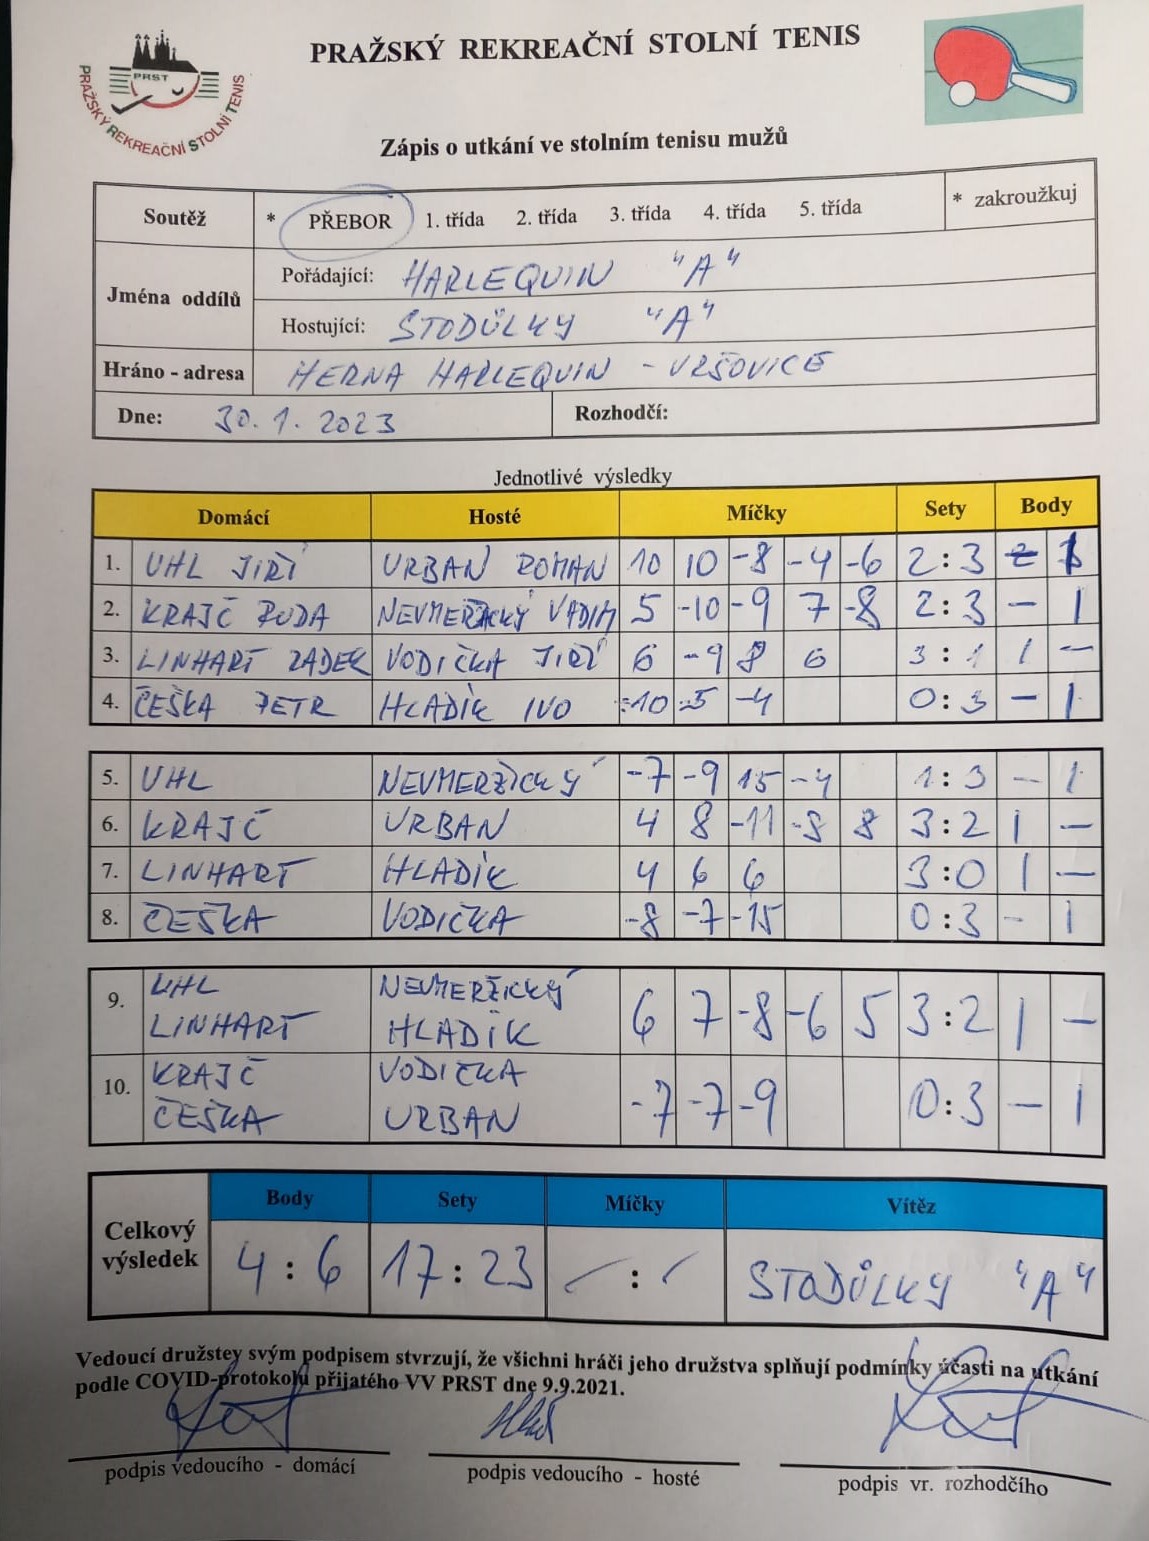 PRAŽSKÝ REKREAČNÍ STOLNÍ TENIS
PRST
PRAŽSKÝ REKREAČNÍ STOLNÍ TENIS
Zápis o utkání ve stolním tenisu mužů
Soutěž * PŘEBOR 1. třída 2. třída 3. třída 4. třída 5. třída * zakroužkuj
Jména oddílů
Pořádající: HARLEQUIN "A"
Hostující: STODŮLKY "A"
Hráno - adresa HERNA HARLEQUIN - VRŠOVICE
Dne: 30. 1. 2023 Rozhodčí:
Jednotlivé výsledky
Domácí Hosté Míčky Sety Body
1. UHL JIŘÍ URBAN ROMAN 10 10 -8 -4 -6 2:3 1
2. KRAJČ RUDA NEVMERŽICKÝ VADIM 5 -10 -9 7 -8 2:3 - 1
3. LINHART RADEK VODIČKA JIŘÍ 6 -9 8 6 3:1 1 -
4. ČEŠKA PETR HLADÍK IVO -10 -5 -4 0:3 - 1
5. UHL NEVMERŽICKÝ -7 -9 15 -4 1:3 - 1
6. KRAJČ URBAN 4 8 -11 -8 8 3:2 1 -
7. LINHART HLADÍK 4 6 6 3:0 1 -
8. ČEŠKA VODIČKA -8 -7 -15 0:3 - 1
9. UHL NEVMERŽICKÝ
LINHART HLADÍK 6 7 -8 -6 5 3:2 1 -
10. KRAJČ VODIČKA
ČEŠKA URBAN -7 -7 -9 0:3 - 1
Celkový výsledek
Body Sety Míčky Vítěz
4:6 17:23 - : - STODŮLKY "A"
Vedoucí družstev svým podpisem stvrzují, že všichni hráči jeho družstva splňují podmínky účasti na utkání
podle COVID-protokolu přijatého VV PRST dne 9.9.2021.
podpis vedoucího - domácí podpis vedoucího - hosté podpis vr. rozhodčího